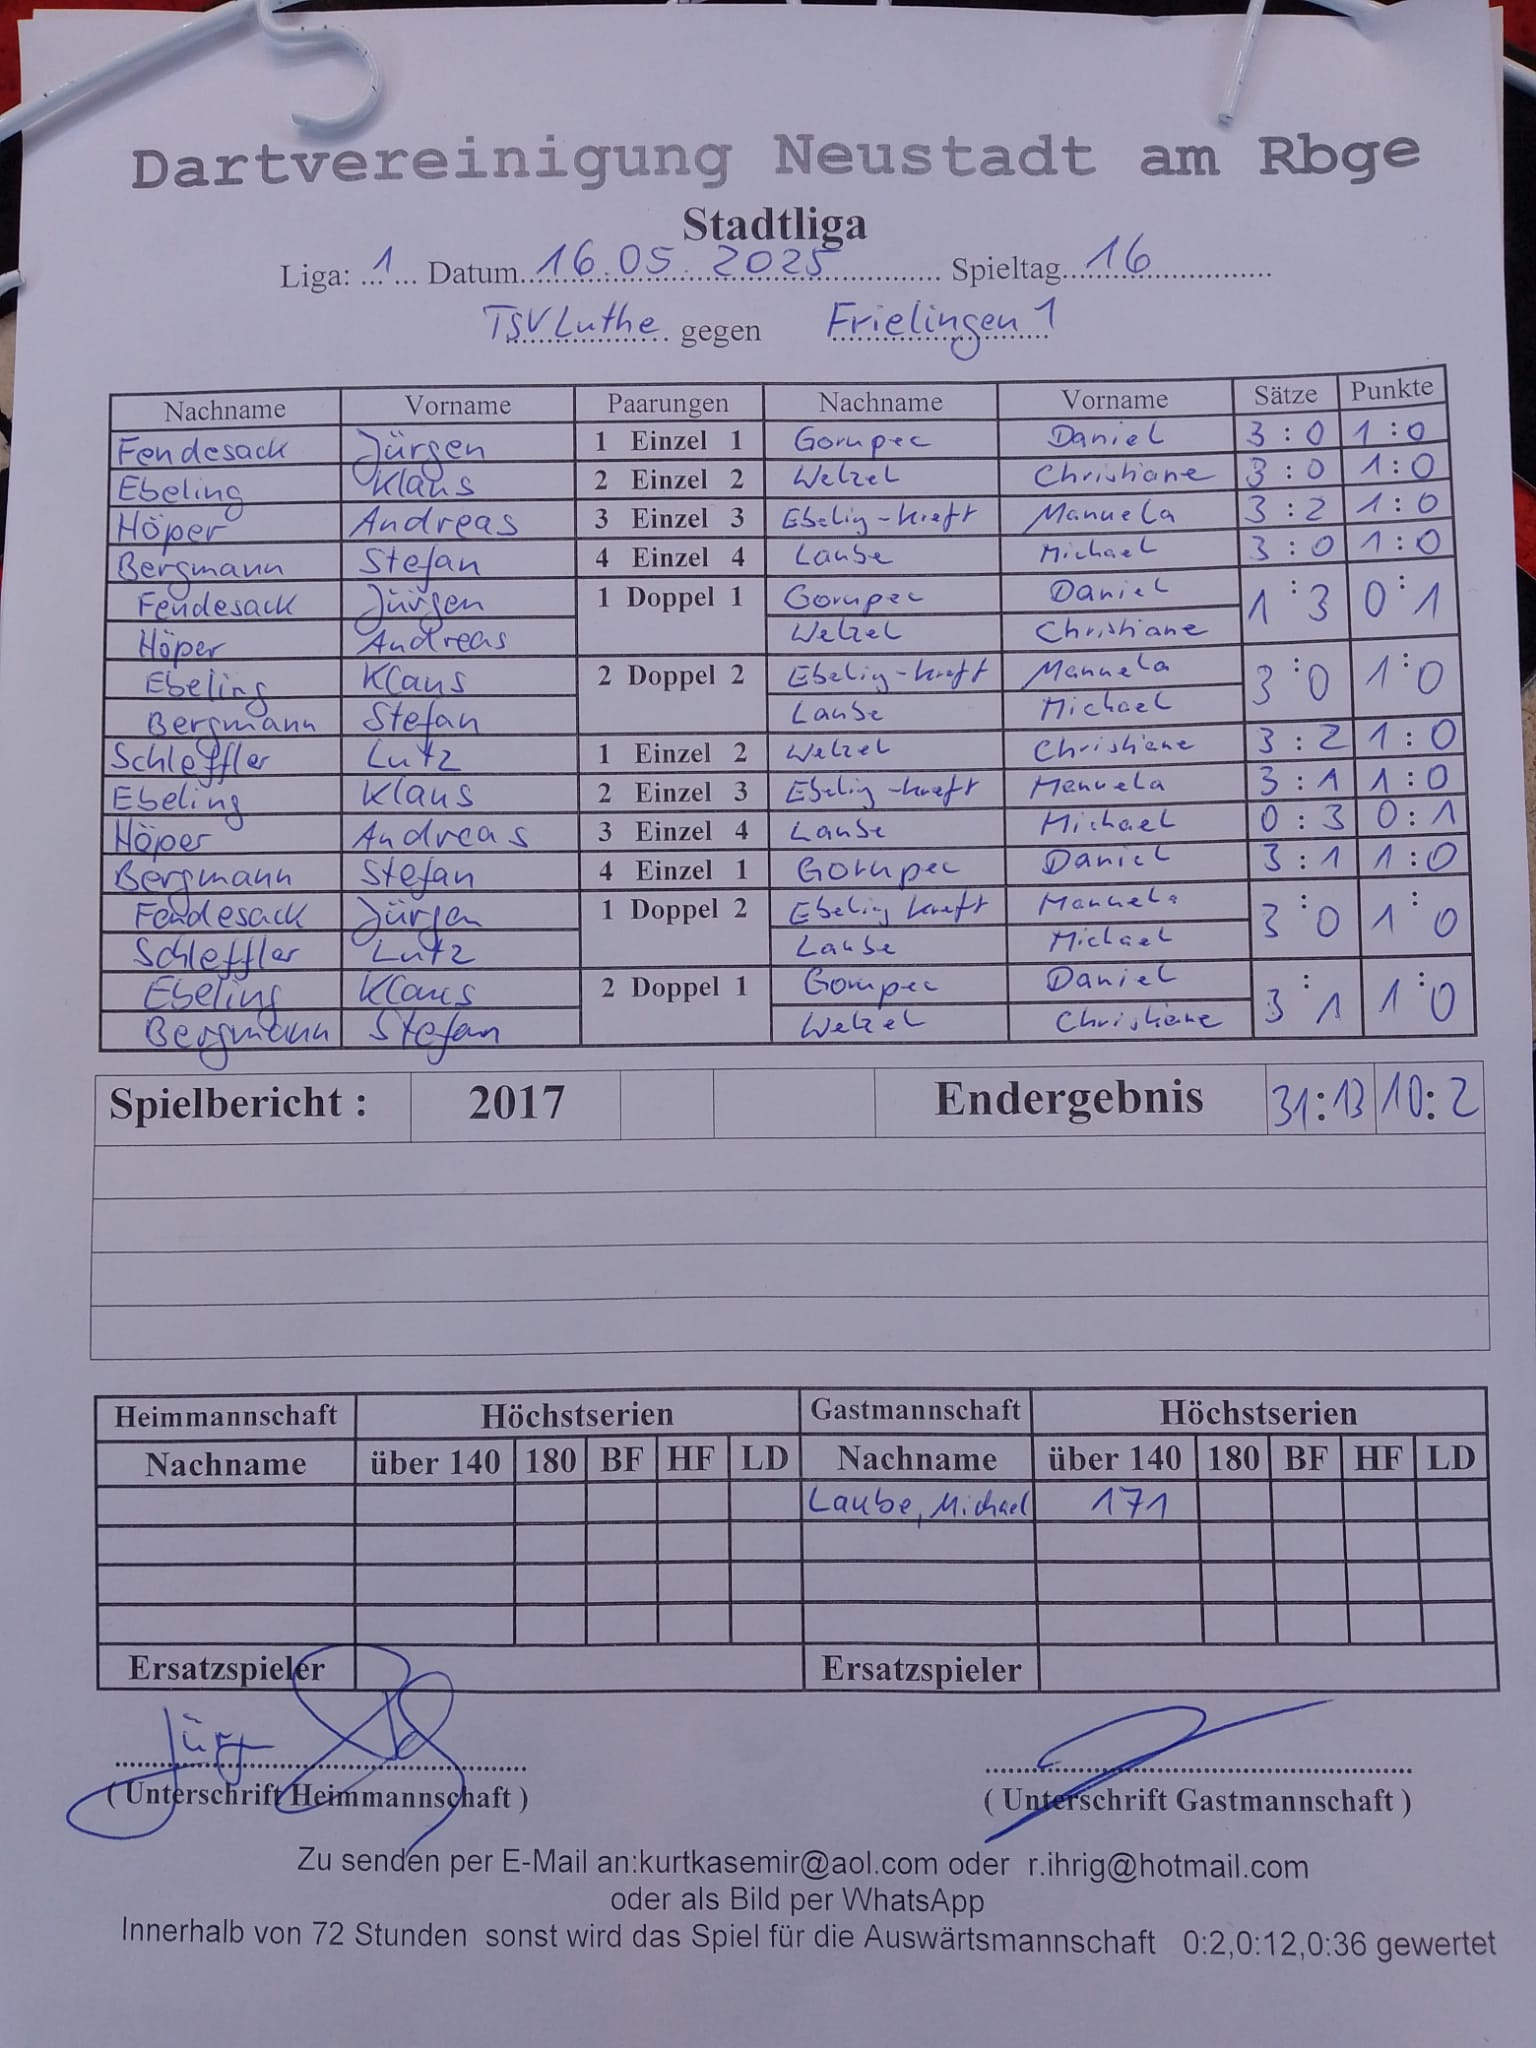 Dartvereinigung Neustadt am Rbge
Stadtliga
Liga: 1 Datum 16.05.2025 Spieltag 16
TSV Luthe gegen Frielingen 1
Nachname Vorname Paarungen Nachname Vorname Sätze Punkte
Fendesack Jürgen 1 Einzel 1 Gornpec Daniel 3 : 0 1 : 0
Ebeling Klaus 2 Einzel 2 Welzel Christiane 3 : 0 1 : 0
Höper Andreas 3 Einzel 3 Ebelig-Kreft Manuela 3 : 2 1 : 0
Bergmann Stefan 4 Einzel 4 Laube Michael 3 : 0 1 : 0
Fendesack Jürgen 1 Doppel 1 Gornpec Daniel 1 : 3 0 : 1
Höper Andreas Welzel Christiane
Ebeling Klaus 2 Doppel 2 Ebelig-Kreft Manuela 3 : 0 1 : 0
Bergmann Stefan Laube Michael
Schleffler Lutz 1 Einzel 2 Welzel Christiane 3 : 2 1 : 0
Ebeling Klaus 2 Einzel 3 Ebelig-Kreft Manuela 3 : 1 1 : 0
Höper Andreas 3 Einzel 4 Laube Michael 0 : 3 0 : 1
Bergmann Stefan 4 Einzel 1 Gornpec Daniel 3 : 1 1 : 0
Fendesack Jürgen 1 Doppel 2 Ebelig Kreft Manuela 3 : 0 1 : 0
Schleffler Lutz Laube Michael
Ebeling Klaus 2 Doppel 1 Gornpec Daniel 3 : 1 1 : 0
Bergmann Stefan Welzel Christiane
Spielbericht : 2017 Endergebnis 31:13 10:2
Heimmannschaft Höchstserien Gastmannschaft Höchstserien
Nachname über 140 180 BF HF LD Nachname über 140 180 BF HF LD
Laube, Michael 171
Ersatzspieler Ersatzspieler
( Unterschrift Heimmannschaft ) ( Unterschrift Gastmannschaft )
Zu senden per E-Mail an:kurtkasemir@aol.com oder r.ihrig@hotmail.com
oder als Bild per WhatsApp
Innerhalb von 72 Stunden sonst wird das Spiel für die Auswärtsmannschaft 0:2,0:12,0:36 gewertet